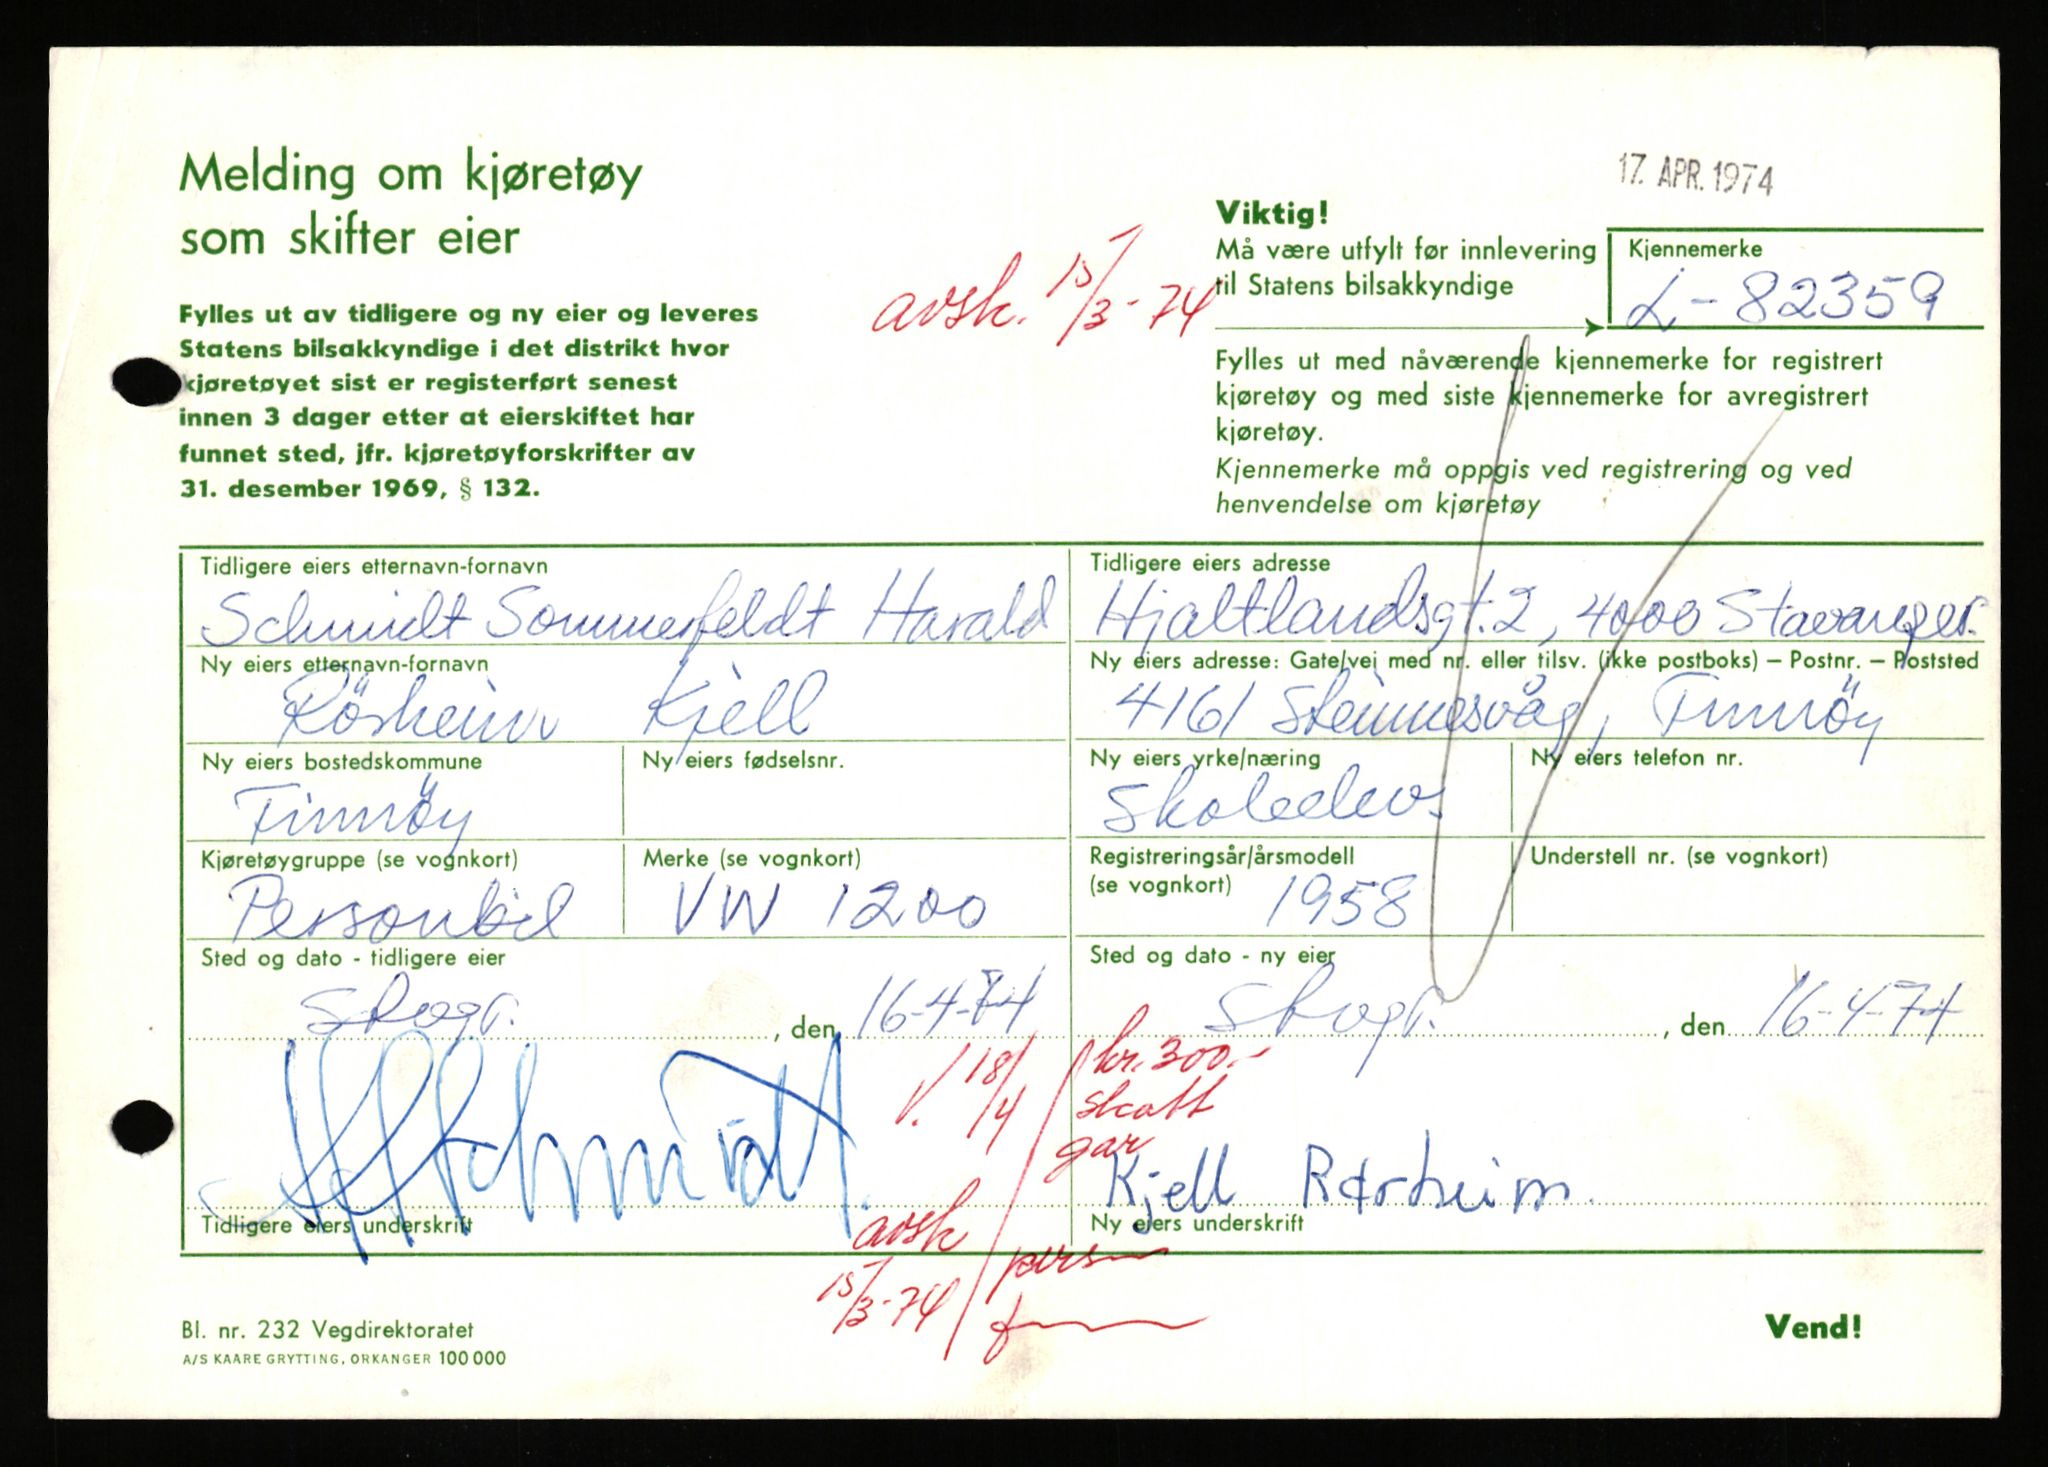 Melding om kjøretøy
som skifter eier
Fylles ut av tidligere og ny eier og leveres
Statens bilsakkyndige i det distrikt hvor
kjøretøyet sist er registerført senest
innen 3 dager etter at eierskiftet har
funnet sted, jfr. kjøretøyforskrifter av
31. desember 1969, § 132.
avsk. 15/3-74
17. APR. 1974
Viktig!
Må være utfylt før innlevering
til Statens bilsakkyndige
Kjennemerke
L-82359
Fylles ut med nåværende kjennemerke for registrert
kjøretøy og med siste kjennemerke for avregistrert
kjøretøy.
Kjennemerke må oppgis ved registrering og ved
henvendelse om kjøretøy
Tidligere eiers etternavn-fornavn
Schmidt Sommerfeldt Harald
Tidligere eiers adresse
Hjaltlandsgt. 2, 4000 Stavanger.
Ny eiers etternavn-fornavn
Rösheim Kjell
Ny eiers adresse: Gate/vei med nr. eller tilsv. (ikke postboks) – Postnr. – Poststed
4161 Steinnesvåg, Finnöy
Ny eiers bostedskommune
Finnöy
Ny eiers fødselsnr.
Ny eiers yrke/næring
Skoleelev.
Ny eiers telefon nr.
Kjøretøygruppe (se vognkort)
Personbil
Merke (se vognkort)
VW 1200
Registreringsår/årsmodell
(se vognkort)
1958
Understell nr. (se vognkort)
Sted og dato - tidligere eier
, den 16-4-74
Sted og dato - ny eier
, den 16-4-74
Schmidt.
Tidligere eiers underskrift
V. 18/4
kr. 300.-
skatt
gar
Kjell
Ny eiers underskrift
avsk
15/3-74
pers
Bl. nr. 232 Vegdirektoratet
A/S KAARE GRYTTING, ORKANGER 100 000
Vend!